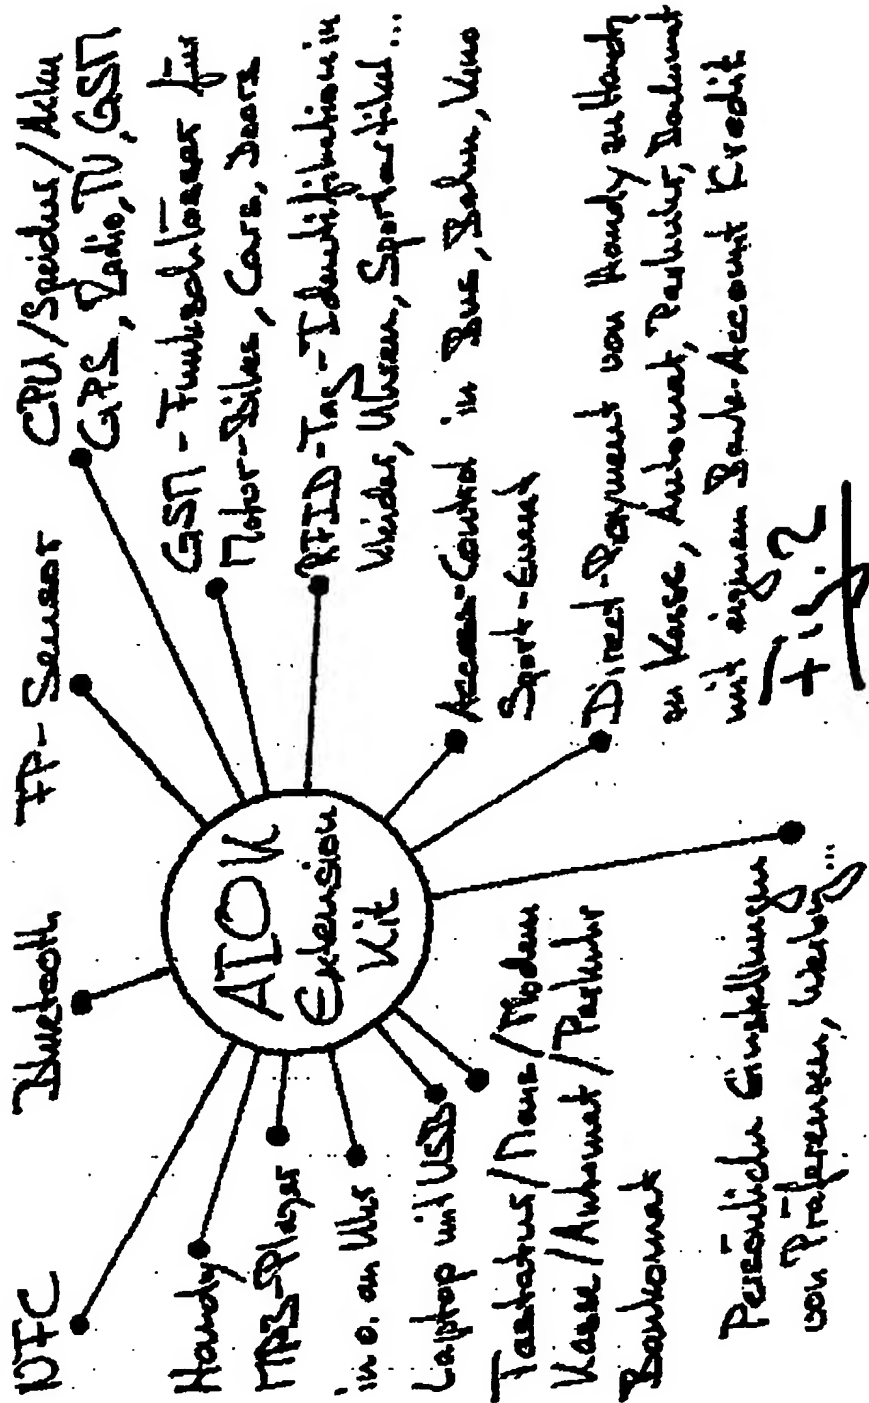 NFC
Bluetooth
FP-Sensor
CPU/Speicher/Akku
GPS, Radio, TV, GSM
GSM-Funkschlösser für
Motor-Bikes, Cars, Doors
RFID-Tag-Identifikation in
Kleider, Uhren, Sportartikel...
Access-Control in Bus, Bahn, Kino
Sport-Event
Direct-Payment von Handy zu Handy
an Kasse, Automat, Parkuhr, Bankomat
mit eigenem Bank-Account Kredit
AIOK
Extension
Kit
Handy
MP3-Player
in o. an Uhr
Laptop mit USB
Tastatur/Maus/Modem
Kasse/Automat/Parkuhr
Bankomat
Persönliche Einstellungen
von Präferenzen, Werbg...
Fig. 2